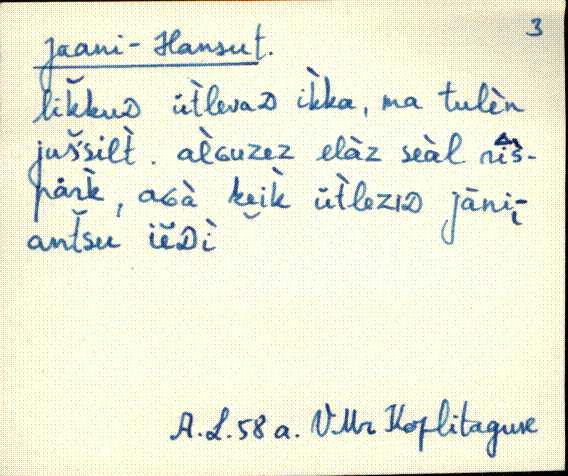 3
Jaani-Hansut.
lik̆kuD üt̀levaD ik̀ka, ma tulèn
juš́silt̀. al̀Guzez elàz seàl
pàrk̀, aGà keik̀ üt̀lezID jāni-
ant̆su
A.L. 58 a. VMr Koplitaguse